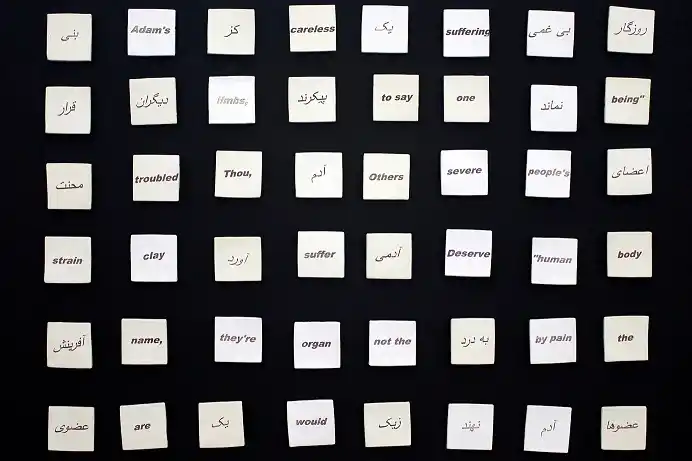 بنی Adam's کز careless یک suffering بی غمی روزگار
قرار دیگران limbs, پیکرند to say one نماند being"
محنت troubled Thou, آدم Others severe people's اعضای
strain clay آورد suffer آدمی Deserve "human body
آفرینش name, they're organ not the به درد by pain the
عضوی are یک would زیک نهند آدم عضوها